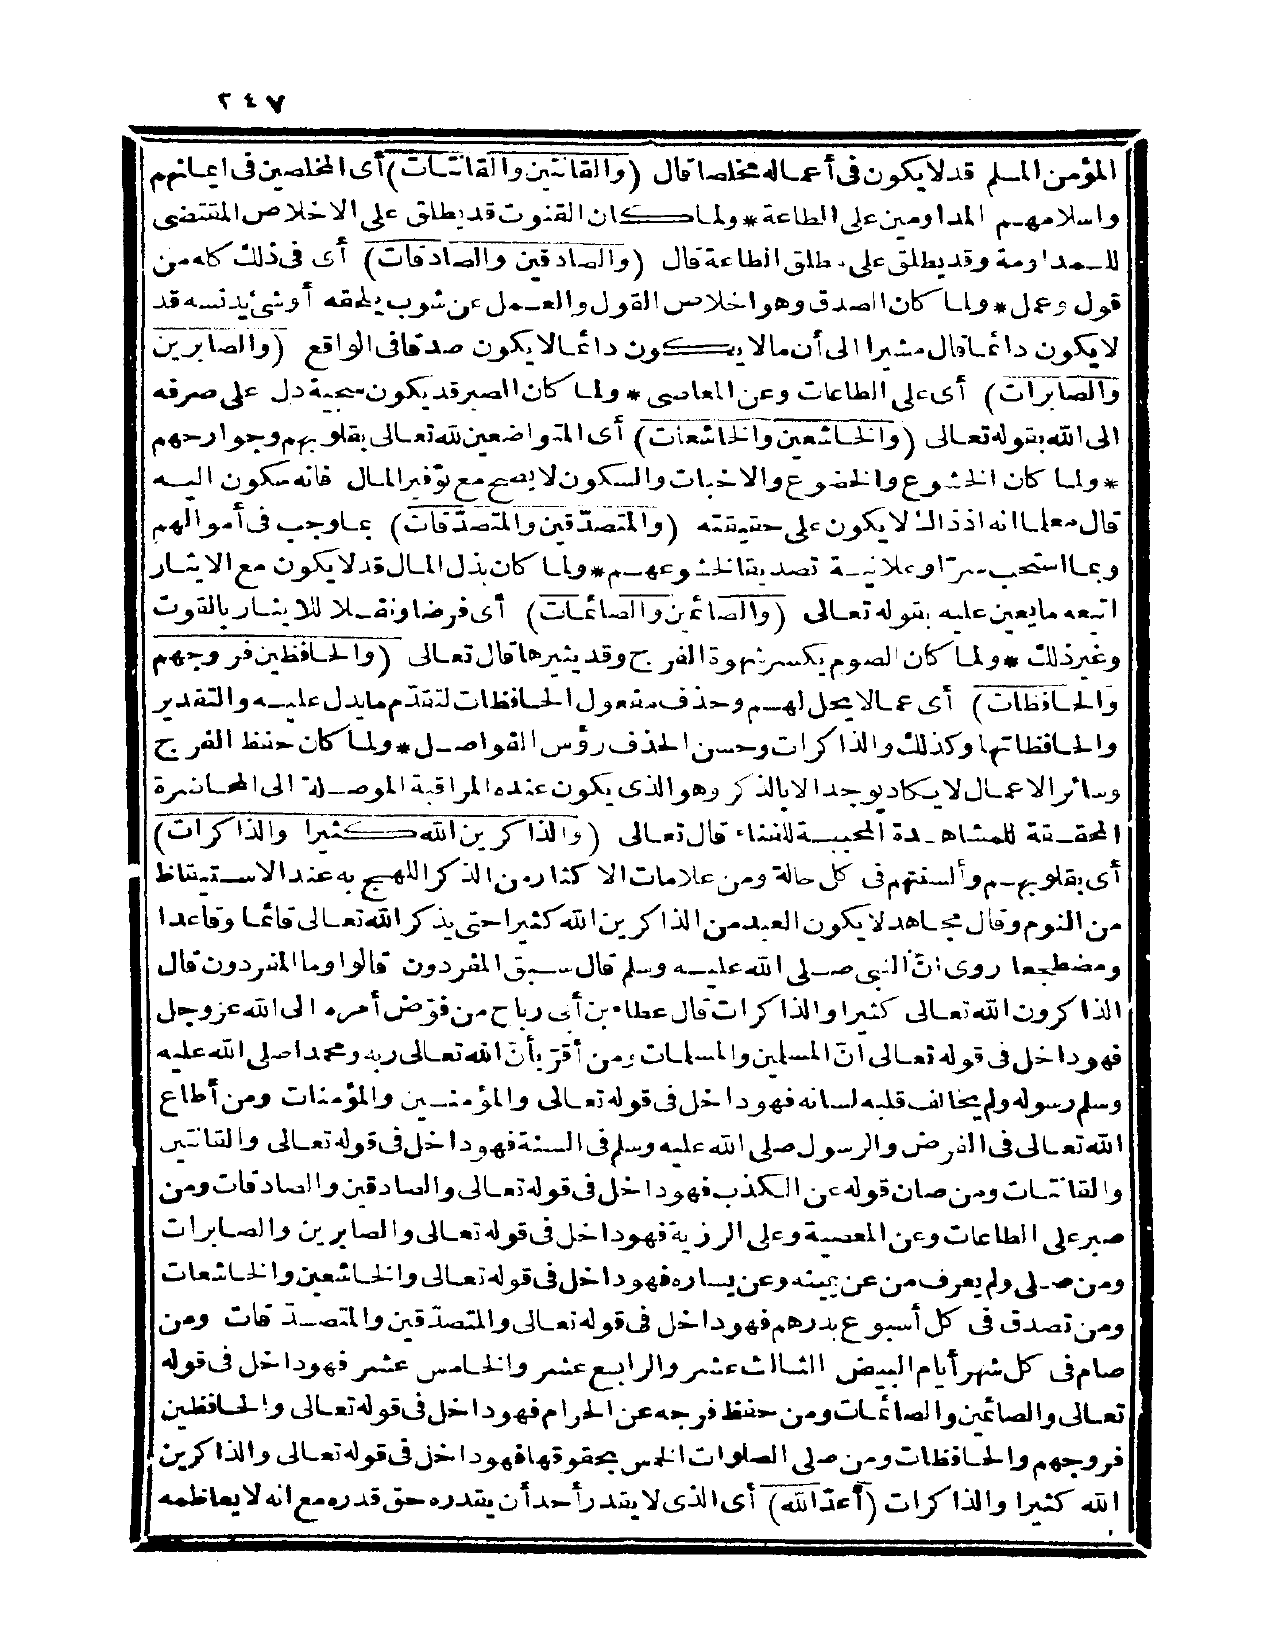 ٢٤٧
المؤمن المسلم قد لا يكون فى أعماله مخلصا قال (والقانتين والقانتات) أى المخلصين فى ايمانهم
واسلامهم المداومين على الطاعة * ولما كان القنوت قد يطلق على الاخلاص المقتضى
للمداومة وقد يطلق على مطلق الطاعة قال (والصادقين والصادقات) أى فى ذلك كله من
قول وعمل * ولما كان الصدق وهو اخلاص القول والعمل عن شوب يلحقه أو شئ يدنسه قد
لا يكون دائما قال مشيرا الى أن ما لا يكون دائما لا يكون صدقا فى الواقع (والصابرين
والصابرات) أى على الطاعات وعن المعاصى * ولما كان الصبر قد يكون سجية دل على صرفه
الى الله بقوله تعالى (والخاشعين والخاشعات) أى المتواضعين لله تعالى بقلوبهم وجوارحهم
* ولما كان الخشوع والخضوع والاخبات والسكون لا يصح مع توفير المال فانه سكون اليه
قال معلما انه اذ ذاك لا يكون على حقيقته (والمتصدّقين والمتصدّقات) بما وجب فى أموالهم
وبما استحب سرّا وعلانية تصديقا لخشوعهم * ولما كان بذل المال قد لا يكون مع الايثار
اتبعه ما يعين عليه بقوله تعالى (والصائمين والصائمات) أى فرضا ونفلا للايثار بالقوت
وغير ذلك * ولما كان الصوم يكسر شهوة الفرج وقد يثيرها قال تعالى (والحافظين فروجهم
والحافظات) أى عما لا يحل لهم وحذف مفعول الحافظات لتقدّم ما يدل عليه والتقدير
والحافظاتها وكذلك والذاكرات وحسن الحذف رؤس الفواصل * ولما كان حفظ الفرج
وسائر الاعمال لا يكاد يوجد الا بالذكر وهو الذى يكون عنده المراقبة الموصلة الى المحاضرة
المحققة للمشاهدة المحيية للفناء قال تعالى (والذاكرين الله كثيرا والذاكرات)
أى بقلوبهم وألسنتهم فى كل حالة ومن علامات الاكثار من الذكر اللهج به عند الاستيقاظ
من النوم وقال مجاهد لا يكون العبد من الذاكرين الله كثيرا حتى يذكر الله تعالى قائما وقاعدا
ومضطجعا روى أنّ النبى صلى الله عليه وسلم قال سبق المفردون قالوا وما المفردون قال
الذاكرون الله تعالى كثيرا والذاكرات قال عطاء بن أبى رباح من فوّض أمره الى الله عز وجل
فهو داخل فى قوله تعالى انّ المسلمين والمسلمات ومن أقرّ بأنّ الله تعالى ربه ومحمدا صلى الله عليه
وسلم رسوله ولم يخالف قلبه لسانه فهو داخل فى قوله تعالى والمؤمنين والمؤمنات ومن أطاع
الله تعالى فى الفرض والرسول صلى الله عليه وسلم فى السنة فهو داخل فى قوله تعالى والقانتين
والقانتات ومن صان قوله عن الكذب فهو داخل فى قوله تعالى والصادقين والصادقات ومن
صبر على الطاعات وعن المعصية وعلى الرزية فهو داخل فى قوله تعالى والصابرين والصابرات
ومن صلى ولم يعرف من عن يمينه وعن يساره فهو داخل فى قوله تعالى والخاشعين والخاشعات
ومن تصدق فى كل أسبوع بدرهم فهو داخل فى قوله تعالى والمتصدّقين والمتصدّقات ومن
صام فى كل شهر أيام البيض الثالث عشر والرابع عشر والخامس عشر فهو داخل فى قوله
تعالى والصائمين والصائمات ومن حفظ فرجه عن الحرام فهو داخل فى قوله تعالى والحافظين
فروجهم والحافظات ومن صلى الصلوات الخمس بحقوقها فهو داخل فى قوله تعالى والذاكرين
الله كثيرا والذاكرات (أعدّ الله) أى الذى لا يقدر أحد أن يقدره حق قدره مع انه لا يعاظمه